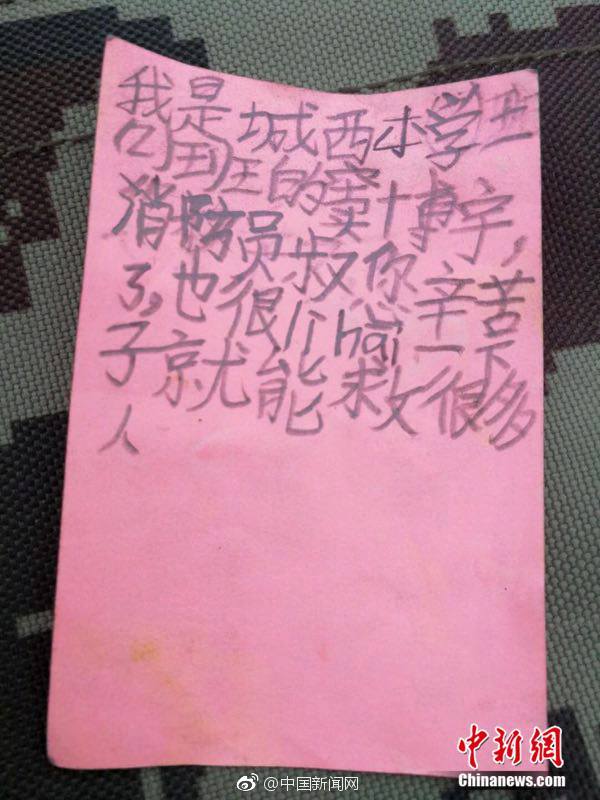 我是城西小学
班的窦博宇,
消防员叔叔你辛苦
了,也很厉hai一下
子就能救很多
人
@中国新闻网
中新網
Chinanews.com